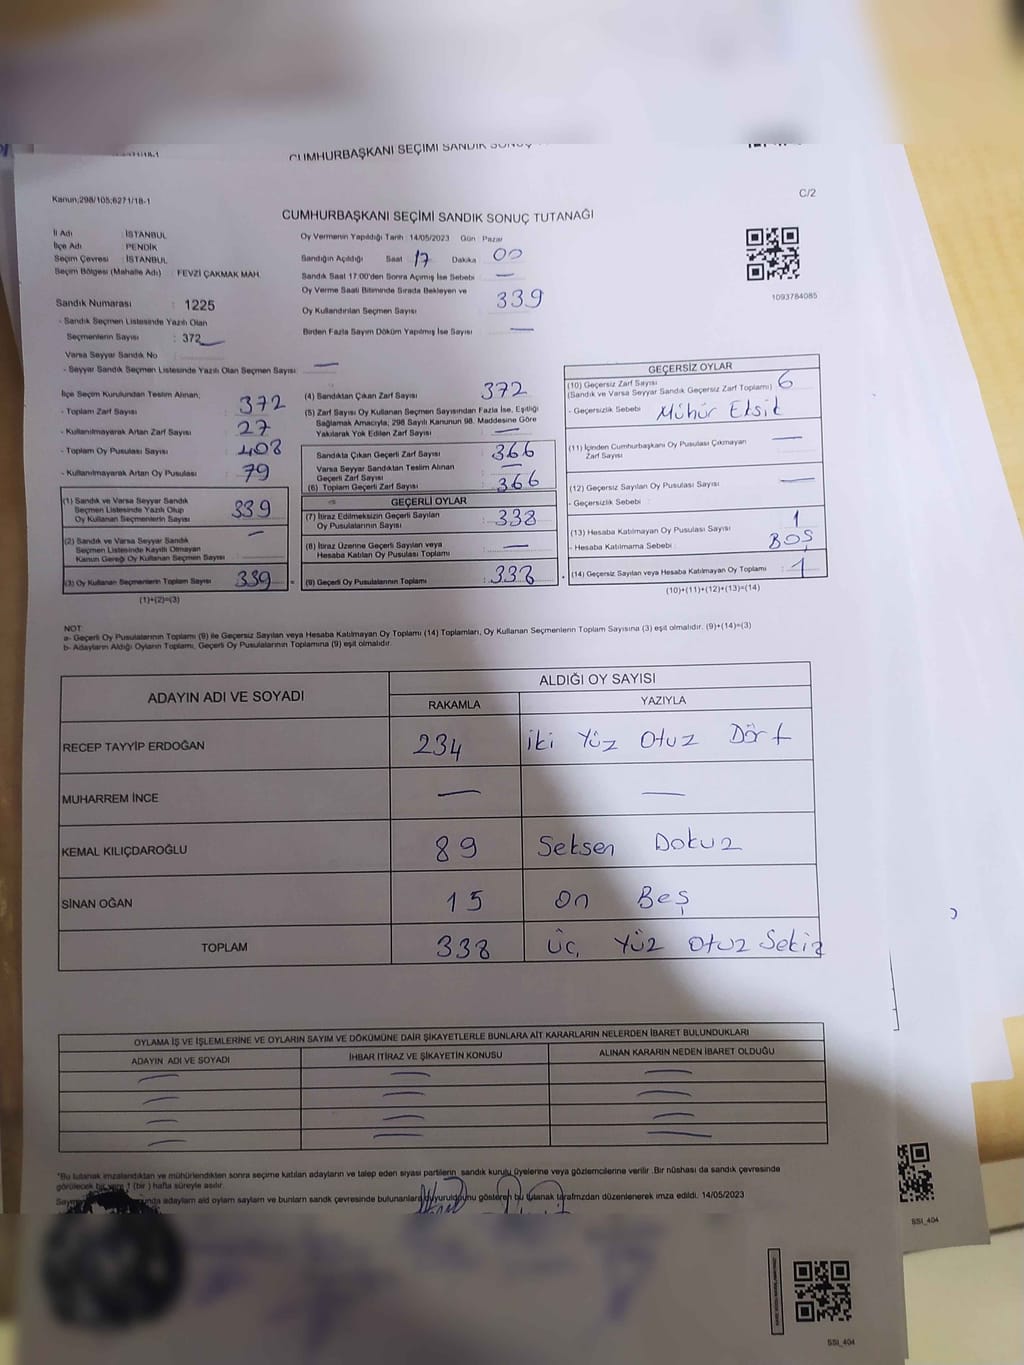 CUMHURBAŞKANI SEÇİMİ SANDIK
Kanun;298/105;6271/18-1
C/2
CUMHURBAŞKANI SEÇİMİ SANDIK SONUÇ TUTANAĞI
İl Adı : İSTANBUL
İlçe Adı : PENDİK
Seçim Çevresi : İSTANBUL
Seçim Bölgesi (Mahalle Adı) : FEVZİ ÇAKMAK MAH.
Sandık Numarası : 1225
- Sandık Seçmen Listesinde Yazılı Olan
Seçmenlerin Sayısı : 372
Varsa Seyyar Sandık No
- Seyyar Sandık Seçmen Listesinde Yazılı Olan Seçmen Sayısı : —
Oy Vermenin Yapıldığı Tarih : 14/05/2023 Gün : Pazar
Sandığın Açıldığı Saat 17 Dakika 00
Sandık Saat 17:00'den Sonra Açımış İse Sebebi : —
Oy Verme Saati Bitiminde Sırada Bekleyen ve
Oy Kullandırılan Seçmen Sayısı : 339
Birden Fazla Sayım Döküm Yapılmış İse Sayısı : —
1093784085
İlçe Seçim Kurulundan Teslim Alınan;
- Toplam Zarf Sayısı : 372
- Kullanılmayarak Artan Zarf Sayısı : 27
- Toplam Oy Pusulası Sayısı : 408
- Kullanılmayarak Artan Oy Pusulası : 79
(1) Sandık ve Varsa Seyyar Sandık
Seçmen Listesinde Yazılı Olup
Oy Kullanan Seçmenlerin Sayısı : 339
(2) Sandık ve Varsa Seyyar Sandık
Seçmen Listesinde Kayıtlı Olmayan
Kanun Gereği Oy Kullanan Seçmen Sayısı : —
(3) Oy Kullanan Seçmenlerin Toplam Sayısı : 339
(1)+(2)=(3)
(4) Sandıktan Çıkan Zarf Sayısı : 372
(5) Zarf Sayısı Oy Kullanan Seçmen Sayısından Fazla İse, Eşitliği
Sağlamak Amacıyla; 298 Sayılı Kanunun 98. Maddesine Göre
Yakılarak Yok Edilen Zarf Sayısı : —
Sandıkta Çıkan Geçerli Zarf Sayısı : 366
Varsa Seyyar Sandıktan Teslim Alınan
Geçerli Zarf Sayısı : —
(6) Toplam Geçerli Zarf Sayısı : 366
GEÇERLİ OYLAR
(7) İtiraz Edilmeksizin Geçerli Sayılan
Oy Pusulalarının Sayısı : 338
(8) İtiraz Üzerine Geçerli Sayılan veya
Hesaba Katılan Oy Pusulası Toplamı : —
(9) Geçerli Oy Pusulalarının Toplamı : 338
GEÇERSİZ OYLAR
(10) Geçersiz Zarf Sayısı : 6
(Sandık ve Varsa Seyyar Sandık Geçersiz Zarf Toplamı)
- Geçersizlik Sebebi : Mühür Eksik
(11) İçinden Cumhurbaşkanı Oy Pusulası Çıkmayan
Zarf Sayısı : —
(12) Geçersiz Sayılan Oy Pusulası Sayısı : —
- Geçersizlik Sebebi :
(13) Hesaba Katılmayan Oy Pusulası Sayısı : 1
- Hesaba Katılmama Sebebi : BOŞ
(14) Geçersiz Sayılan veya Hesaba Katılmayan Oy Toplamı : 1
(10)+(11)+(12)+(13)=(14)
NOT:
a- Geçerli Oy Pusulalarının Toplamı (9) ile Geçersiz Sayılan veya Hesaba Katılmayan Oy Toplamı (14) Toplamları, Oy Kullanan Seçmenlerin Toplam Sayısına (3) eşit olmalıdır. (9)+(14)=(3)
b- Adayların Aldığı Oyların Toplamı, Geçerli Oy Pusulalarının Toplamına (9) eşit olmalıdır.
ADAYIN ADI VE SOYADI
ALDIĞI OY SAYISI
RAKAMLA YAZIYLA
RECEP TAYYİP ERDOĞAN 234 İki Yüz Otuz Dört
MUHARREM İNCE — —
KEMAL KILIÇDAROĞLU 89 Seksen Dokuz
SİNAN OĞAN 15 On Beş
TOPLAM 338 Üç Yüz Otuz Sekiz
OYLAMA İŞ VE İŞLEMLERİNE VE OYLARIN SAYIM VE DÖKÜMÜNE DAİR ŞİKAYETLERLE BUNLARA AİT KARARLARIN NELERDEN İBARET BULUNDUKLARI
ADAYIN ADI VE SOYADI İHBAR İTİRAZ VE ŞİKAYETİN KONUSU ALINAN KARARIN NEDEN İBARET OLDUĞU
— — —
— — —
— — —
— — —
*Bu tutanak imzalandıktan ve mühürlendikten sonra seçime katılan adayların ve talep eden siyasi partilerin sandık kurulu üyelerine veya gözlemcilerine verilir. Bir nüshası da sandık çevresinde
görülecek bir yere 1 (bir) hafta süreyle asılır.
adayların ald oyların sayların ve bunların sandk çevresinde bulunanlara duyurulduğunu gösteren bu tutanak tarafımzdan düzenlenerek imza edildi. 14/05/2023
SSI_404
SSI_404